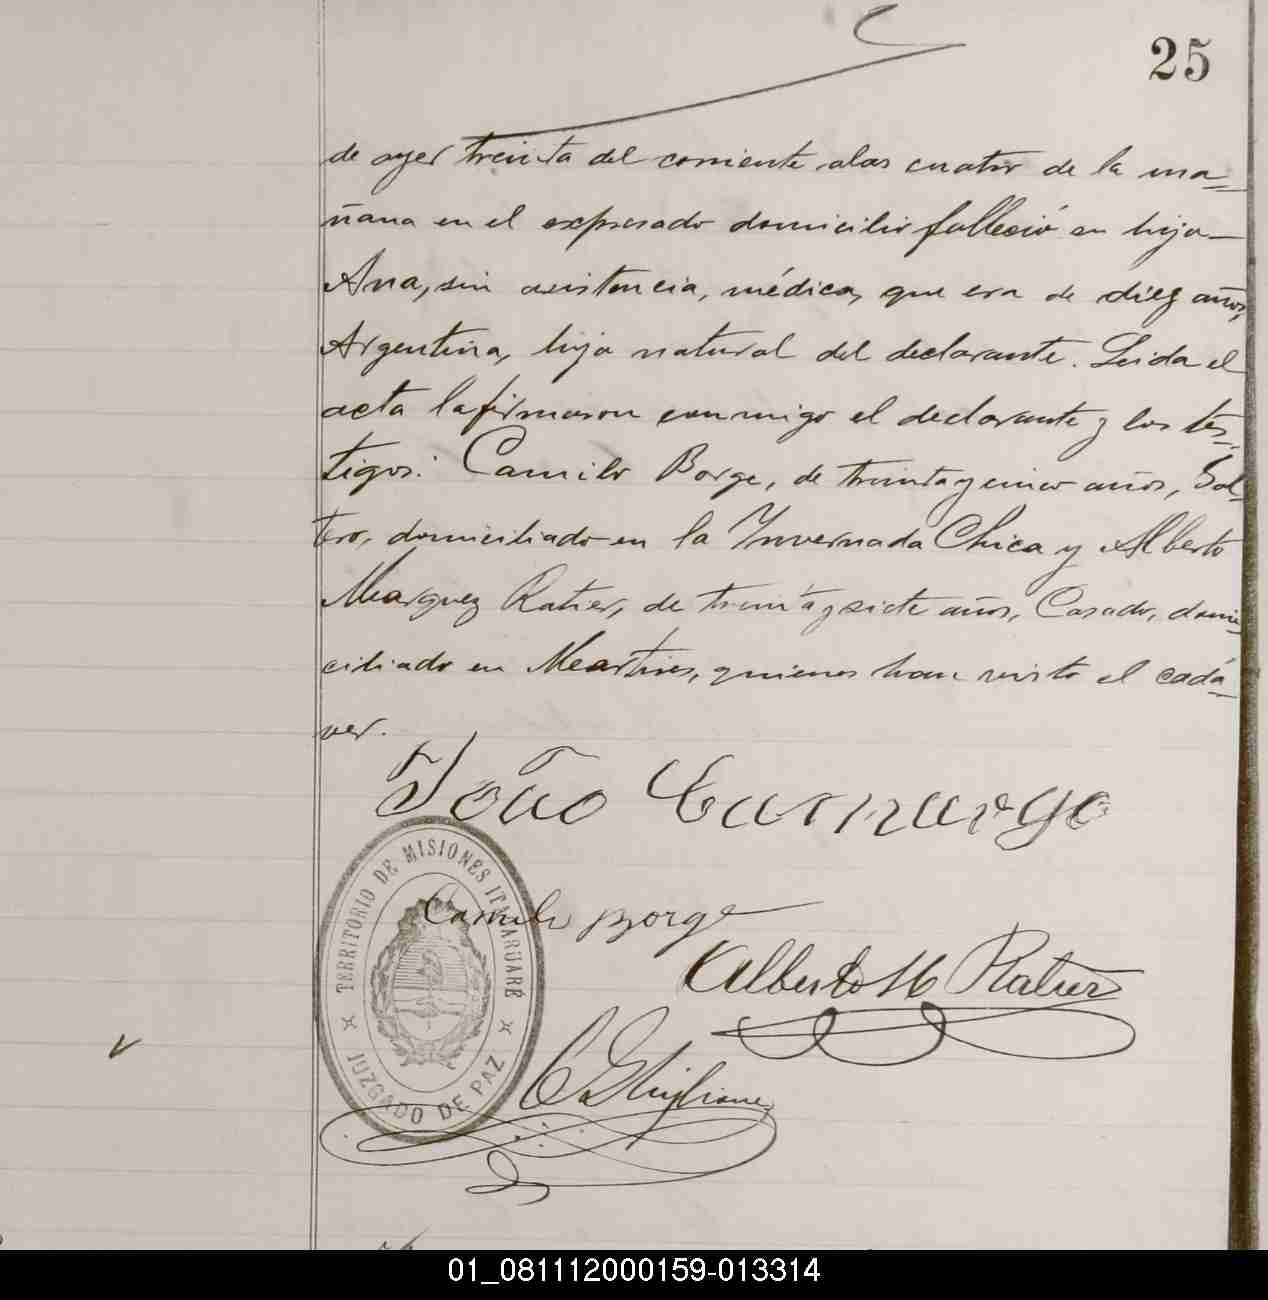 25
de ayer treinta del corriente alas cuatro de la ma=
ñana en el expresado domicilio falleció su hija
Ana, sin asistencia, médica, que era de diez años,
Argentina, hija natural del declarante. Leida el
acta la firmaron conmigo el declarante y los tes=
tigos: Camilo Borge, de treinta y cinco años, Sol=
tero, domiciliado en la Invernada Chica y Alberto
Marquez Ratier, de treinta y siete años, Casado, domi=
ciliado en Martires, quienes han visto el cadá=
ver.
João Camargo
TERRITORIO DE MISIONES ITACARUARÉ
JUZGADO DE PAZ
Camilo Borge
Alberto M Ratier
01_081112000159-013314